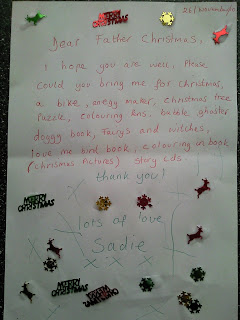 26/November/10
MERRY CHRISTMAS
Dear Father Christmas,
I hope you are well, Please
could you bring me for christmas,
a bike, maker, christmas tree
puzzle, colouring Pens, bubble ghoster
doggy book, Fairys and witches,
love me bird book, colouring in book
(chrismas pictures) story cds.
thank you!
MERRY CHRISTMAS
MERRY CHRISTMAS
lots of love
Sadie
x x x
MERRY CHRISTMAS
MERRY CHRISTMAS
MERRY CHRISTMAS